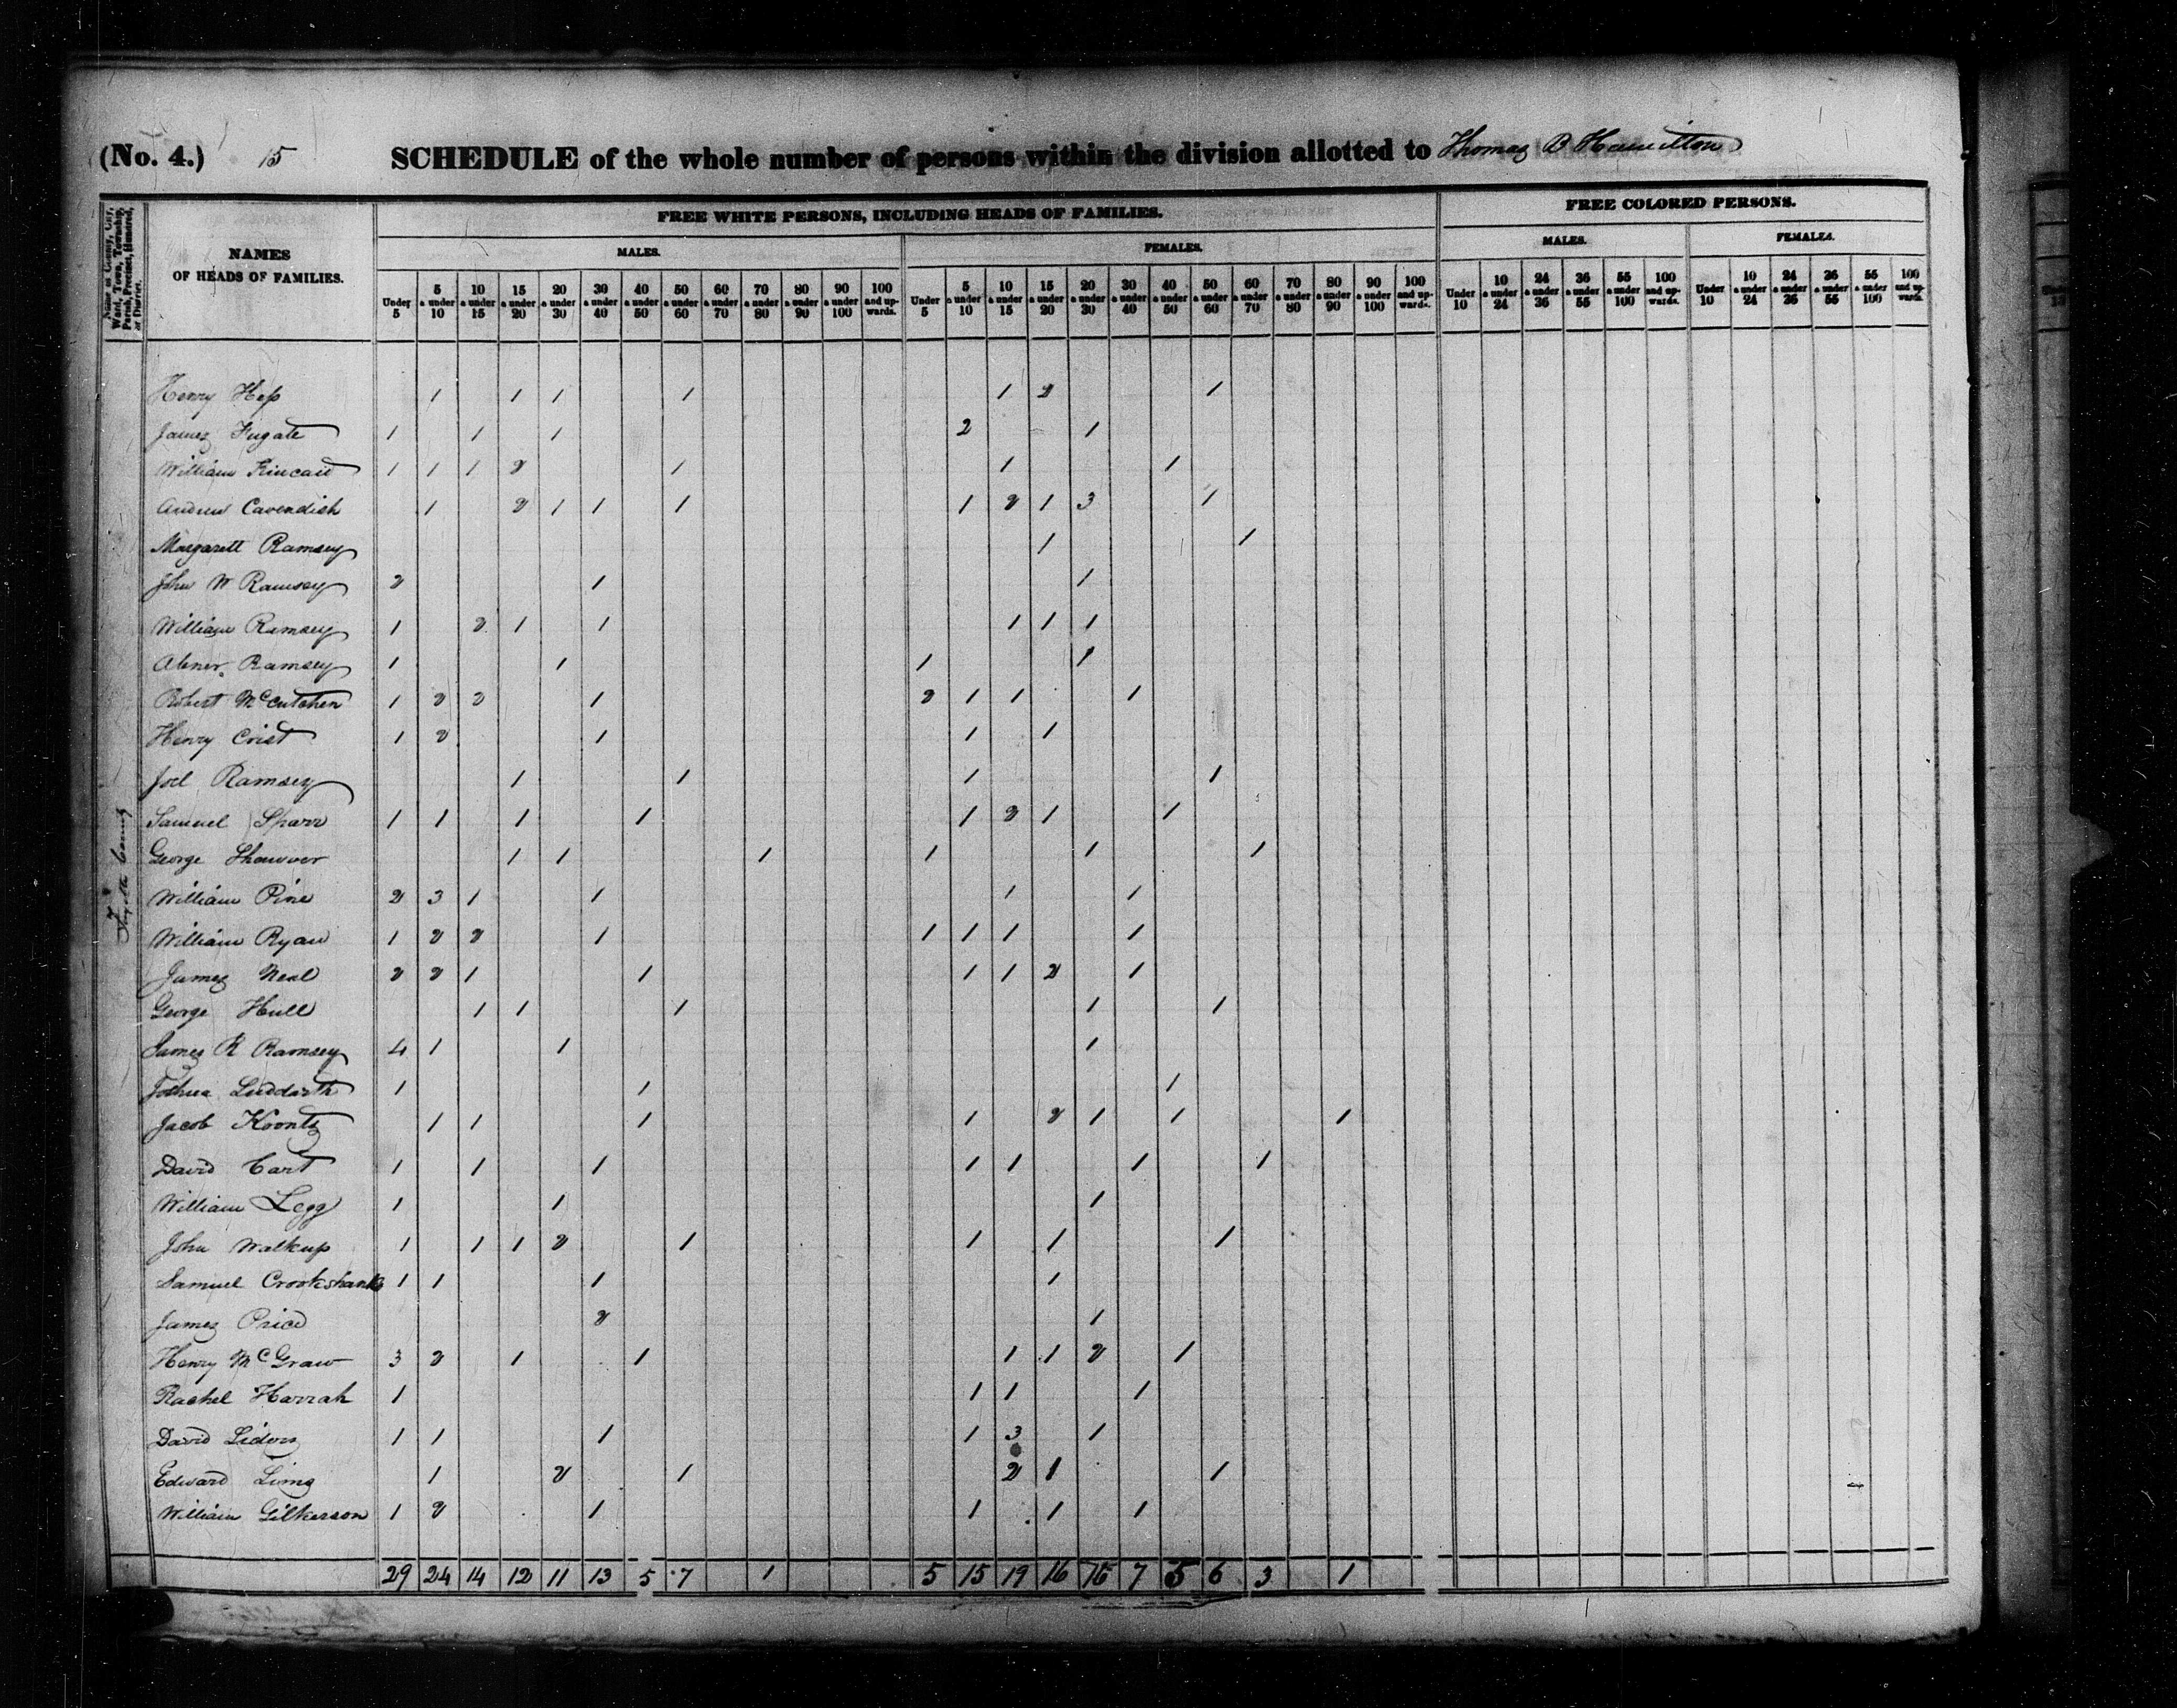 (No. 4.) 15 SCHEDULE of the whole number of persons within the division allotted to Thomas B Hamilton
Name of County, City, Ward, Town, Township, Parish, Precinct, Hundred, or District.
NAMES
OF HEADS OF FAMILIES.
FREE WHITE PERSONS, INCLUDING HEADS OF FAMILIES.
FREE COLORED PERSONS.
MALES. FEMALES. MALES. FEMALES.
Under 5
5 & under 10
10 & under 15
15 & under 20
20 & under 30
30 & under 40
40 & under 50
50 & under 60
60 & under 70
70 & under 80
80 & under 90
90 & under 100
100 and upwards.
Under 5
5 & under 10
10 & under 15
15 & under 20
20 & under 30
30 & under 40
40 & under 50
50 & under 60
60 & under 70
70 & under 80
80 & under 90
90 & under 100
100 and upwards.
Under 10
10 & under 24
24 & under 36
36 & under 55
55 & under 100
100 and upwards.
Under 10
10 & under 24
24 & under 36
36 & under 55
55 & under 100
100 and upwards.
Fayette County
Henry Hess 1 1 1 1 1 2 1
James Fugate 1 1 1 2 1
William Kincaid 1 1 1 2 1 1 1
Andrew Cavendish 1 2 1 1 1 1 2 1 3 1
Margarett Ramsey 1 1
John W Ramsey 2 1 1
William Ramsey 1 2 1 1 1 1 1
Abner Ramsey 1 1 1 1
Robert McCutchen 1 2 2 1 2 1 1 1
Henry Crist 1 2 1 1 1
Joel Ramsey 1 1 1 1
Samuel Sparr 1 1 1 1 1 2 1 1
George Shawver 1 1 1 1 1 1
William Pine 2 3 1 1 1 1
William Ryan 1 2 2 1 1 1 1 1
James Neal 2 2 1 1 1 1 2 1
George Hull 1 1 1 1 1
James R Ramsey 4 1 1 1
Joshua Suddarth 1 1 1
Jacob Koontz 1 1 1 1 2 1 1 1
David Cart 1 1 1 1 1 1 1
William Legg 1 1 1
John Walkup 1 1 1 2 1 1 1 1
Samuel Crookshanks 1 1 1 1
James Price 2 1
Henry McGraw 3 2 1 1 1 1 2 1
Rachel Harrah 1 1 1 1
David 1 1 1 1 3 1
Edward Sims 1 2 1 2 1 1
William Gilkerson 1 2 1 1 1 1
29 24 14 12 11 13 5 7 1 5 15 19 16 15 7 5 6 3 1